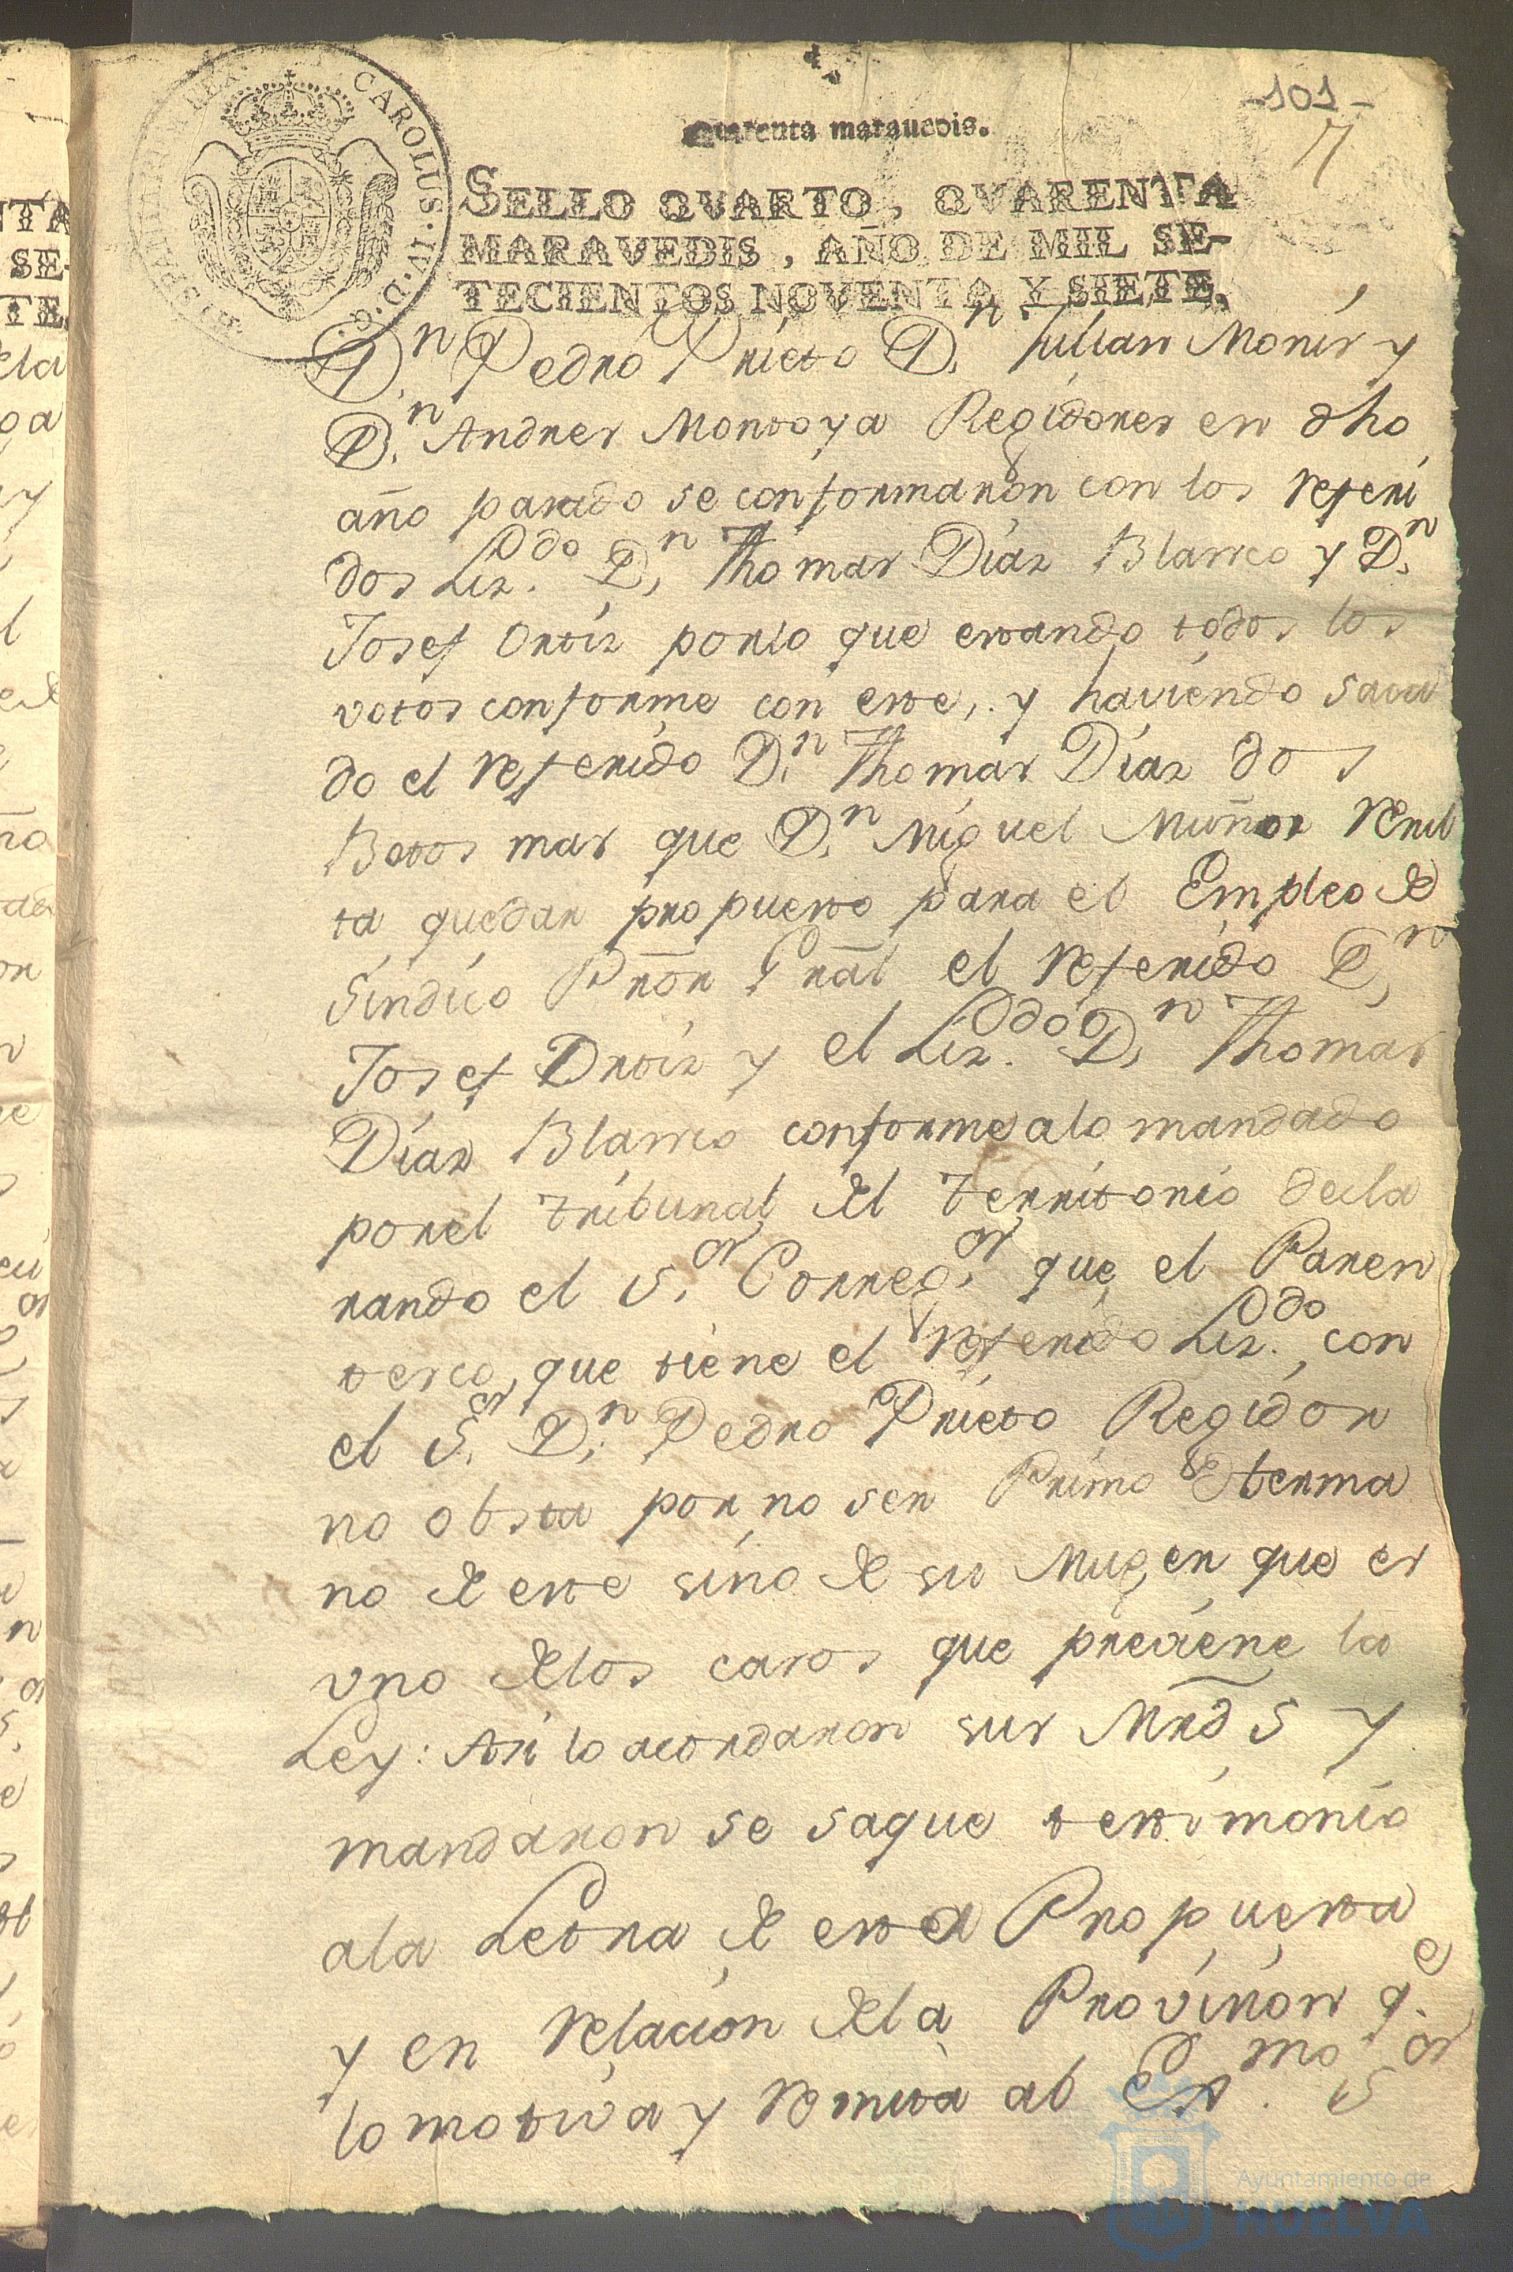 -101-
7
Quarenta marauedis.
HISPANIARUM REX CAROLUS IV D. G.
SELLO QVARTO, QVARENTA
MARAVEDIS, AÑO DE MIL SE-
TECIENTOS NOVENTA Y SIETE.
D.n Pedro Prieto D.n Julian Monis y
D.n Andres Montoya Regidores en dho
año pasado se conformaron con los referi
dos Liz.do D.n Thomas Diaz Blanco y D.n
Josef Ortiz porlo que estando todos los
votos conforme con este, y haviendo saca
do el referido D.n Thomas Diaz dos
Botos mas que D.n Miguel Muñoz resul
ta quedar propuesto para el Empleo de
Sindico Prõr Grãl el referido D.n
Josef Ortiz y el Liz.do D.n Thomas
Diaz Blanco conforme alo mandado
porel tribunal del territorio decla
rando el S.or Correg.or que el Paren
tesco que tiene el referido Liz.do con
el S.or D.n Pedro Prieto Regidor
no obsta por no ser Primo de herma
no de este sino de su Muger que es
uno delos casos que previene la
Ley: Asi lo acordaron sus Mrds y
mandaron se saque testimonio
ala Letra de esta Propuesta
y en relacion dela Provision q.e
lo motiva y remita al Ex.mo S.or
Ayuntamiento de
HUELVA